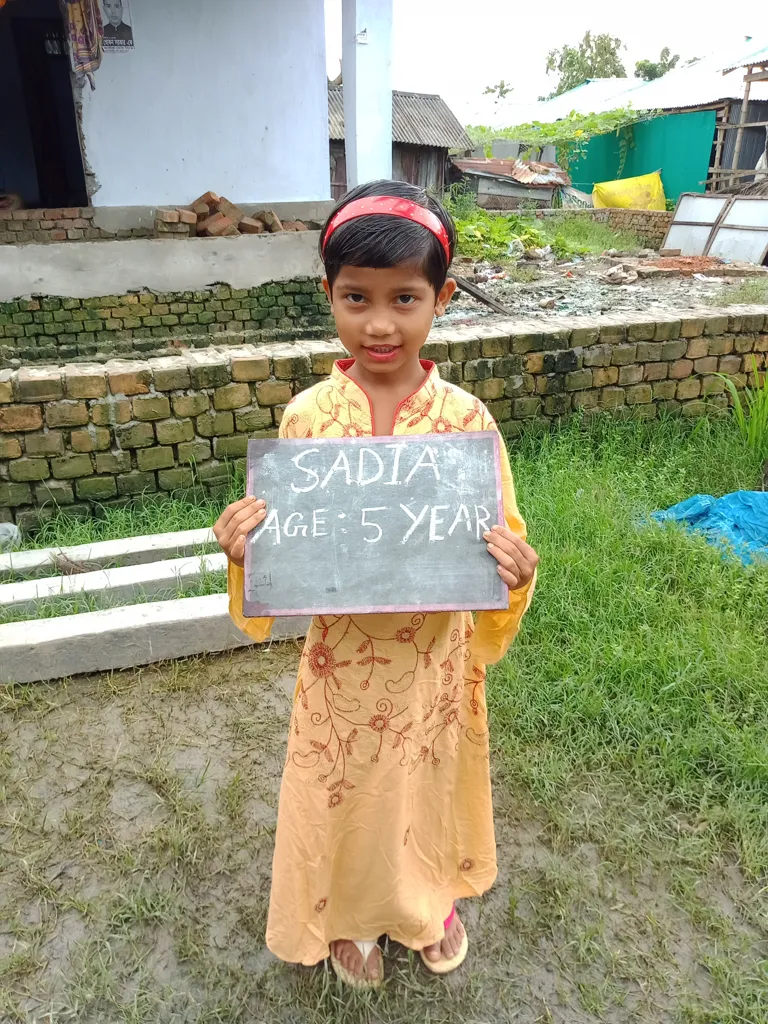 SADIA
AGE: 5 YEAR